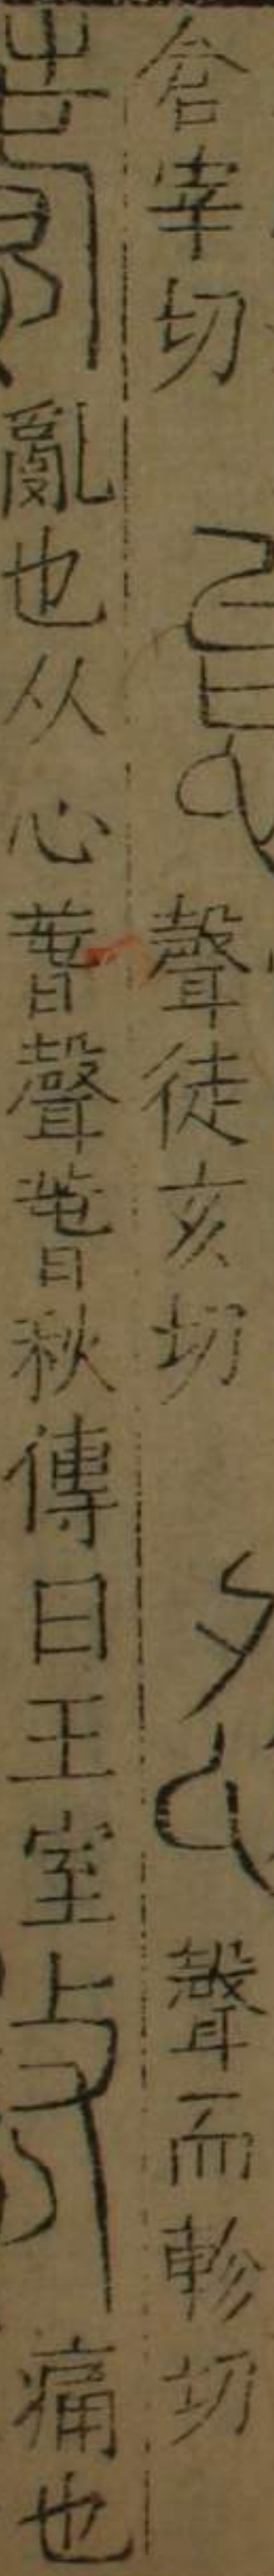 倉宰切 聲徒亥切 聲而軫切
亂也从心萅聲萅秋傳曰王室 痛也